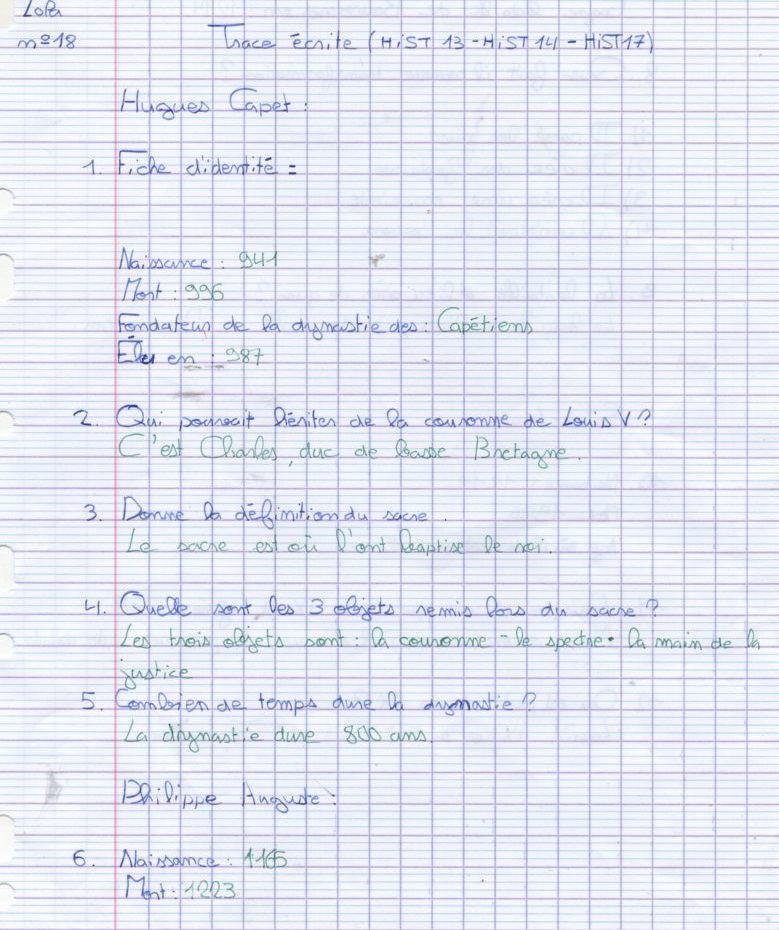 Lola
n°18
Trace écrite (HiST 13 - HiST 14 - HiST17)
Hugues Capet :
1. Fiche d'identité =
Naissance : 941
Mort : 996
Fondateur de la dynastie des : Capétiens
Élu en : 987
2. Qui pourrait hériter de la couronne de Louis V ?
C'est Charles, duc de basse Bretagne.
3. Donne la définition du sacre.
Le sacre est où l'ont baptise le roi.
4. Quelle sont les 3 objets remis lors du sacre ?
Les trois objets sont : la couronne - le spectre • la main de la
justice
5. Combien de temps dure la dynastie ?
La dynastie dure 800 ans.
Philippe Auguste :
6. Naissance : 1165
Mort : 1223